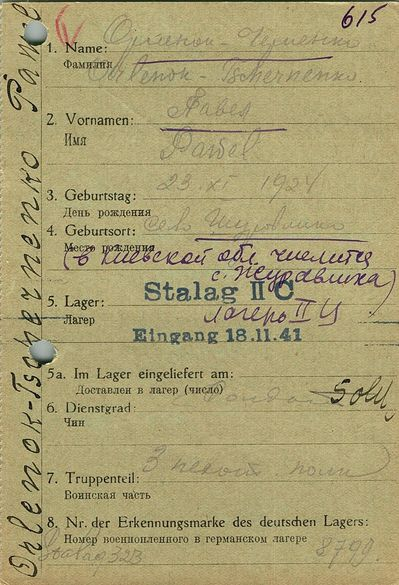 615
1. Name:
Фамилия
Orlenok-Tschernenko
2. Vornamen:
Имя
Павел
Pawel
3. Geburtstag:
23 XI 1924
День рождения
4. Geburtsort:
Место рождения
(в Киевской обл. числится
с. Журавлиха)
5. Lager:
Лагерь
Stalag II C
лагерь II Ц
Eingang 18.11.41
5a. Im Lager eingeliefert am:
Доставлен в лагерь (число)
6. Dienstgrad:
Sold
Чин
3 пехот. полк
7. Truppenteil:
Воинская часть
8. Nr. der Erkennungsmarke des deutschen Lagers:
Номер военнопленного в германском лагере
323
8799
Orlenok-Tschernenko Pawel